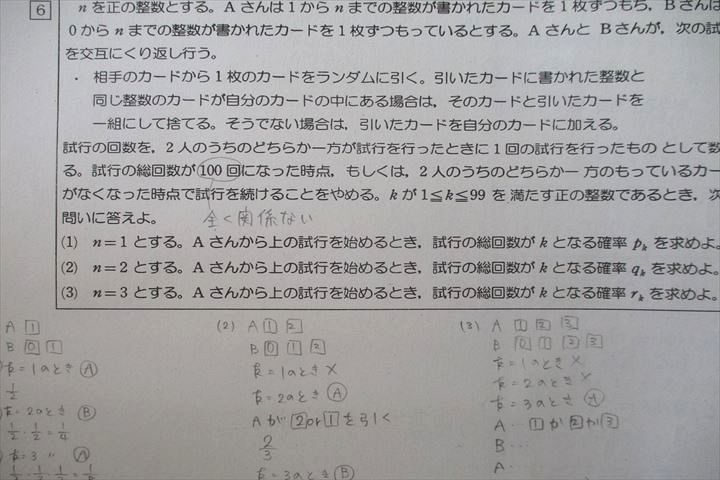 6
nを正の整数とする。Aさんは1からnまでの整数が書かれたカードを1枚ずつもち，Bさんは
0からnまでの整数が書かれたカードを1枚ずつもっているとする。AさんとBさんが，次の試
を交互にくり返し行う。
・ 相手のカードから1枚のカードをランダムに引く。引いたカードに書かれた整数と
同じ整数のカードが自分のカードの中にある場合は，そのカードと引いたカードを
一組にして捨てる。そうでない場合は，引いたカードを自分のカードに加える。
試行の回数を，2人のうちのどちらか一方が試行を行ったときに1回の試行を行ったもの として数
る。試行の総回数が100回になった時点，もしくは，2人のうちのどちらか一 方のもっているカー
がなくなった時点で試行を続けることをやめる。kが1≦k≦99 を満たす正の整数であるとき，次
問いに答えよ。 全く関係ない
(1) n=1とする。Aさんから上の試行を始めるとき，試行の総回数がkとなる確率 pk を求めよ。
(2) n=2とする。Aさんから上の試行を始めるとき，試行の総回数がkとなる確率 qk を求めよ。
(3) n=3とする。Aさんから上の試行を始めるとき，試行の総回数がkとなる確率 rk を求めよ。
A 1
B 0 1
k=1のとき A
1/2
k=2のとき B
1/2・1/2=1/4
k=3 〃 A
(2) A 1 2
B 0 1 2
k=1のとき ×
k=2のとき A
Aが 2 or 1 を引く
2/3
k=3のとき B
(3) A 1 2 3
B 0 1 2 3
k=1のとき ×
k=2のとき ×
k=3のとき A
A… 1か2か3
B…
A…